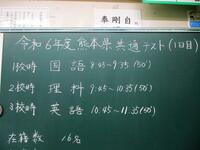 泰剛自
令和6年度熊本県共通テスト(1日目)
1校時 国語 8:45~9:35(50')
2校時 理科 9:45~10:35(50')
3校時 英語 10:45~11:35(50')
在籍数 16名